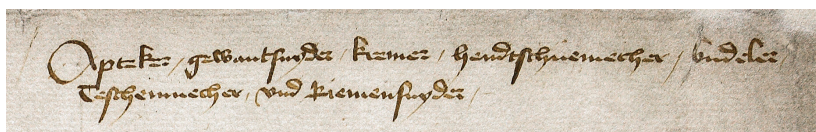 Apteker / gewantsnyder / kremer / hendtschuemecher / budeler /
Teschenmecher / vnd Riemensnyder /